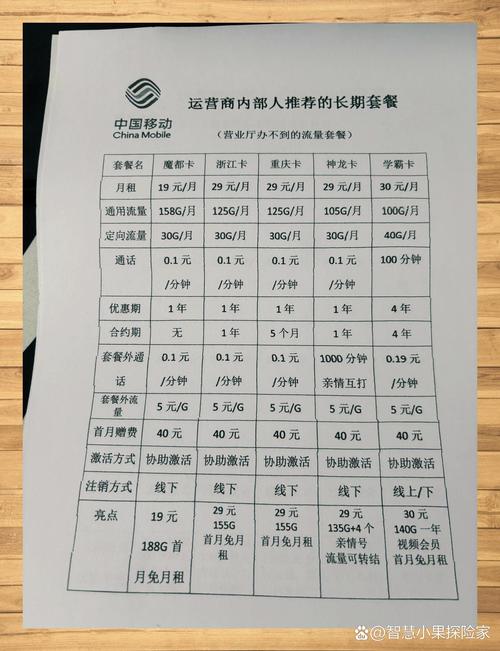 中国移动
China Mobile
运营商内部人推荐的长期套餐
（营业厅办不到的流量套餐）
套餐名 魔都卡 浙江卡 重庆卡 神龙卡 学霸卡
月租 19 元/月 29 元/月 29 元/月 29 元/月 30 元/月
通用流量 158G/月 125G/月 125G/月 105G/月 100G/月
定向流量 30G/月 30G/月 30G/月 30G/月 40G/月
通话 0.1 元 0.1 元 0.1 元 0.1 元 100 分钟
/分钟 /分钟 /分钟 /分钟
优惠期 1 年 1 年 1 年 1 年 4 年
合约期 无 1 年 5 个月 1 年 4 年
套餐外通 0.1 元 0.1 元 0.1 元 1000 分钟 0.19 元
话 /分钟 /分钟 /分钟 亲情互打 /分钟
套餐外流
量 5 元/G 5 元/G 5 元/G 5 元/G 5 元/G
首月赠费 40 元 40 元 40 元 40 元 40 元
激活方式 协助激活 协助激活 协助激活 协助激活 协助激活
注销方式 线下 线下 线下 线下 线上/下
亮点 19 元 29 元 29 元 29 元 30 元
155G 155G 135G+4 个 140G 一年
188G 首 首月免月 首月免月 亲情号 视频会员
月免月租 租 租 流量可转结 首月免月租
@智慧小果探险家